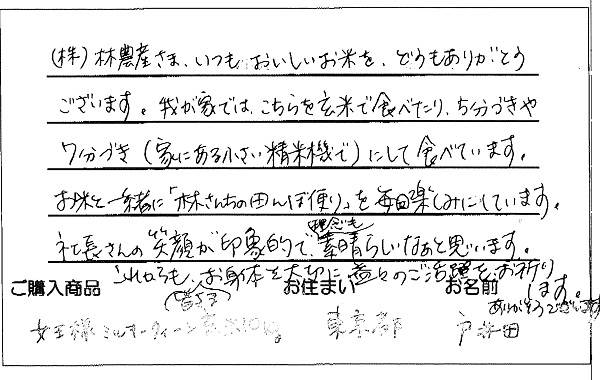 (株)林農産さま、いつもおいしいお米を、どうもありがとう
ございます。我が家では、こちらを玄米で食べたり、5分づきや
7分づき(家にある小さい精米機で)にして食べています。
お米と一緒に「林さんちの田んぼ便り」を毎回楽しみにしています。
社長さんの笑顔が印象的で、理念も素晴らしいなあと思います。
これからも、皆さまお身体を大切に益々のご活躍をお祈りします。
ありがとうございます
ご購入商品 お住まい お名前
女王様ミルキークィーン玄米10kg 東京都 戸井田